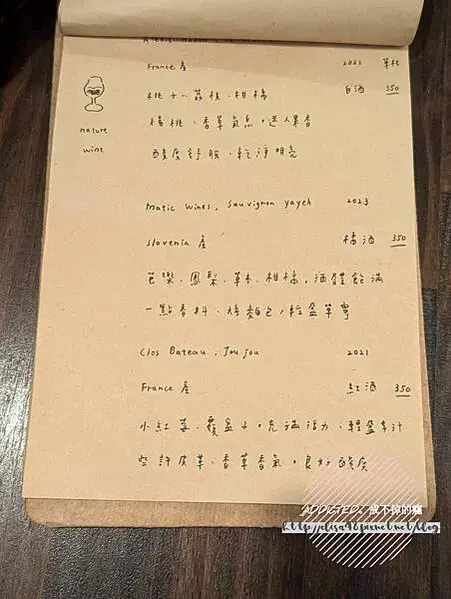 France 產 2021 單杯
白酒 350
nature
wine
桃子、荔枝、柑橘
楊桃、香草氣息，迷人果香
酸度舒服、乾淨明亮
Matic Wines, Sauvignon yayeh 2023
Slovenia 產 橘酒 350
芭樂、鳳梨、草本、柑橘，酒體飽滿
一點香料、烤麵包，輕盈單寧
Clos Bateau, Joujou 2021
France 產 紅酒 350
小紅莓、覆盆子，充滿活力、輕盈多汁
些許皮革、香草香氣，良好酸度
ADDICTED. 戒不掉的癮
http://elisa92.pixnet.net/blog